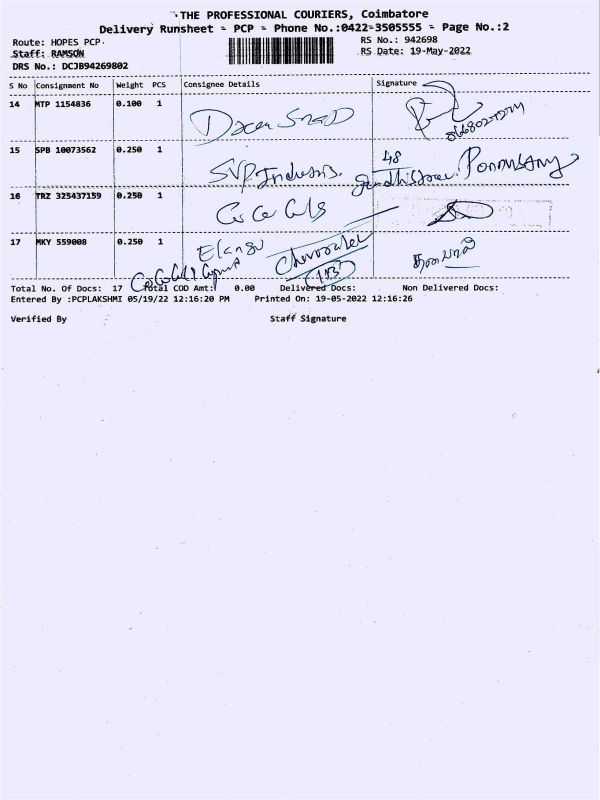 THE PROFESSIONAL COURIERS, Coimbatore
Delivery Runsheet - PCP - Phone No.:0422-3505555 - Page No.:2
Route: HOPES PCP
RS No.: 942698
Staff: RAMSON
RS Date: 19-May-2022
DRS No.: DCJB94269802
S No Consignment No Weight PCS Consignee Details Signature
14 MTP 1154836 0.100 1
15 SPB 10073562 0.250 1 SVP Industris. 48
16 TRZ 325437159 0.250 1
17 MKY 559008 0.250 1 Elango
Total No. Of Docs: 17 Total COD Amt: 0.00 Delivered Docs: Non Delivered Docs:
Entered By :PCPLAKSHMI 05/19/22 12:16:20 PM Printed On: 19-05-2022 12:16:26
Verified By Staff Signature